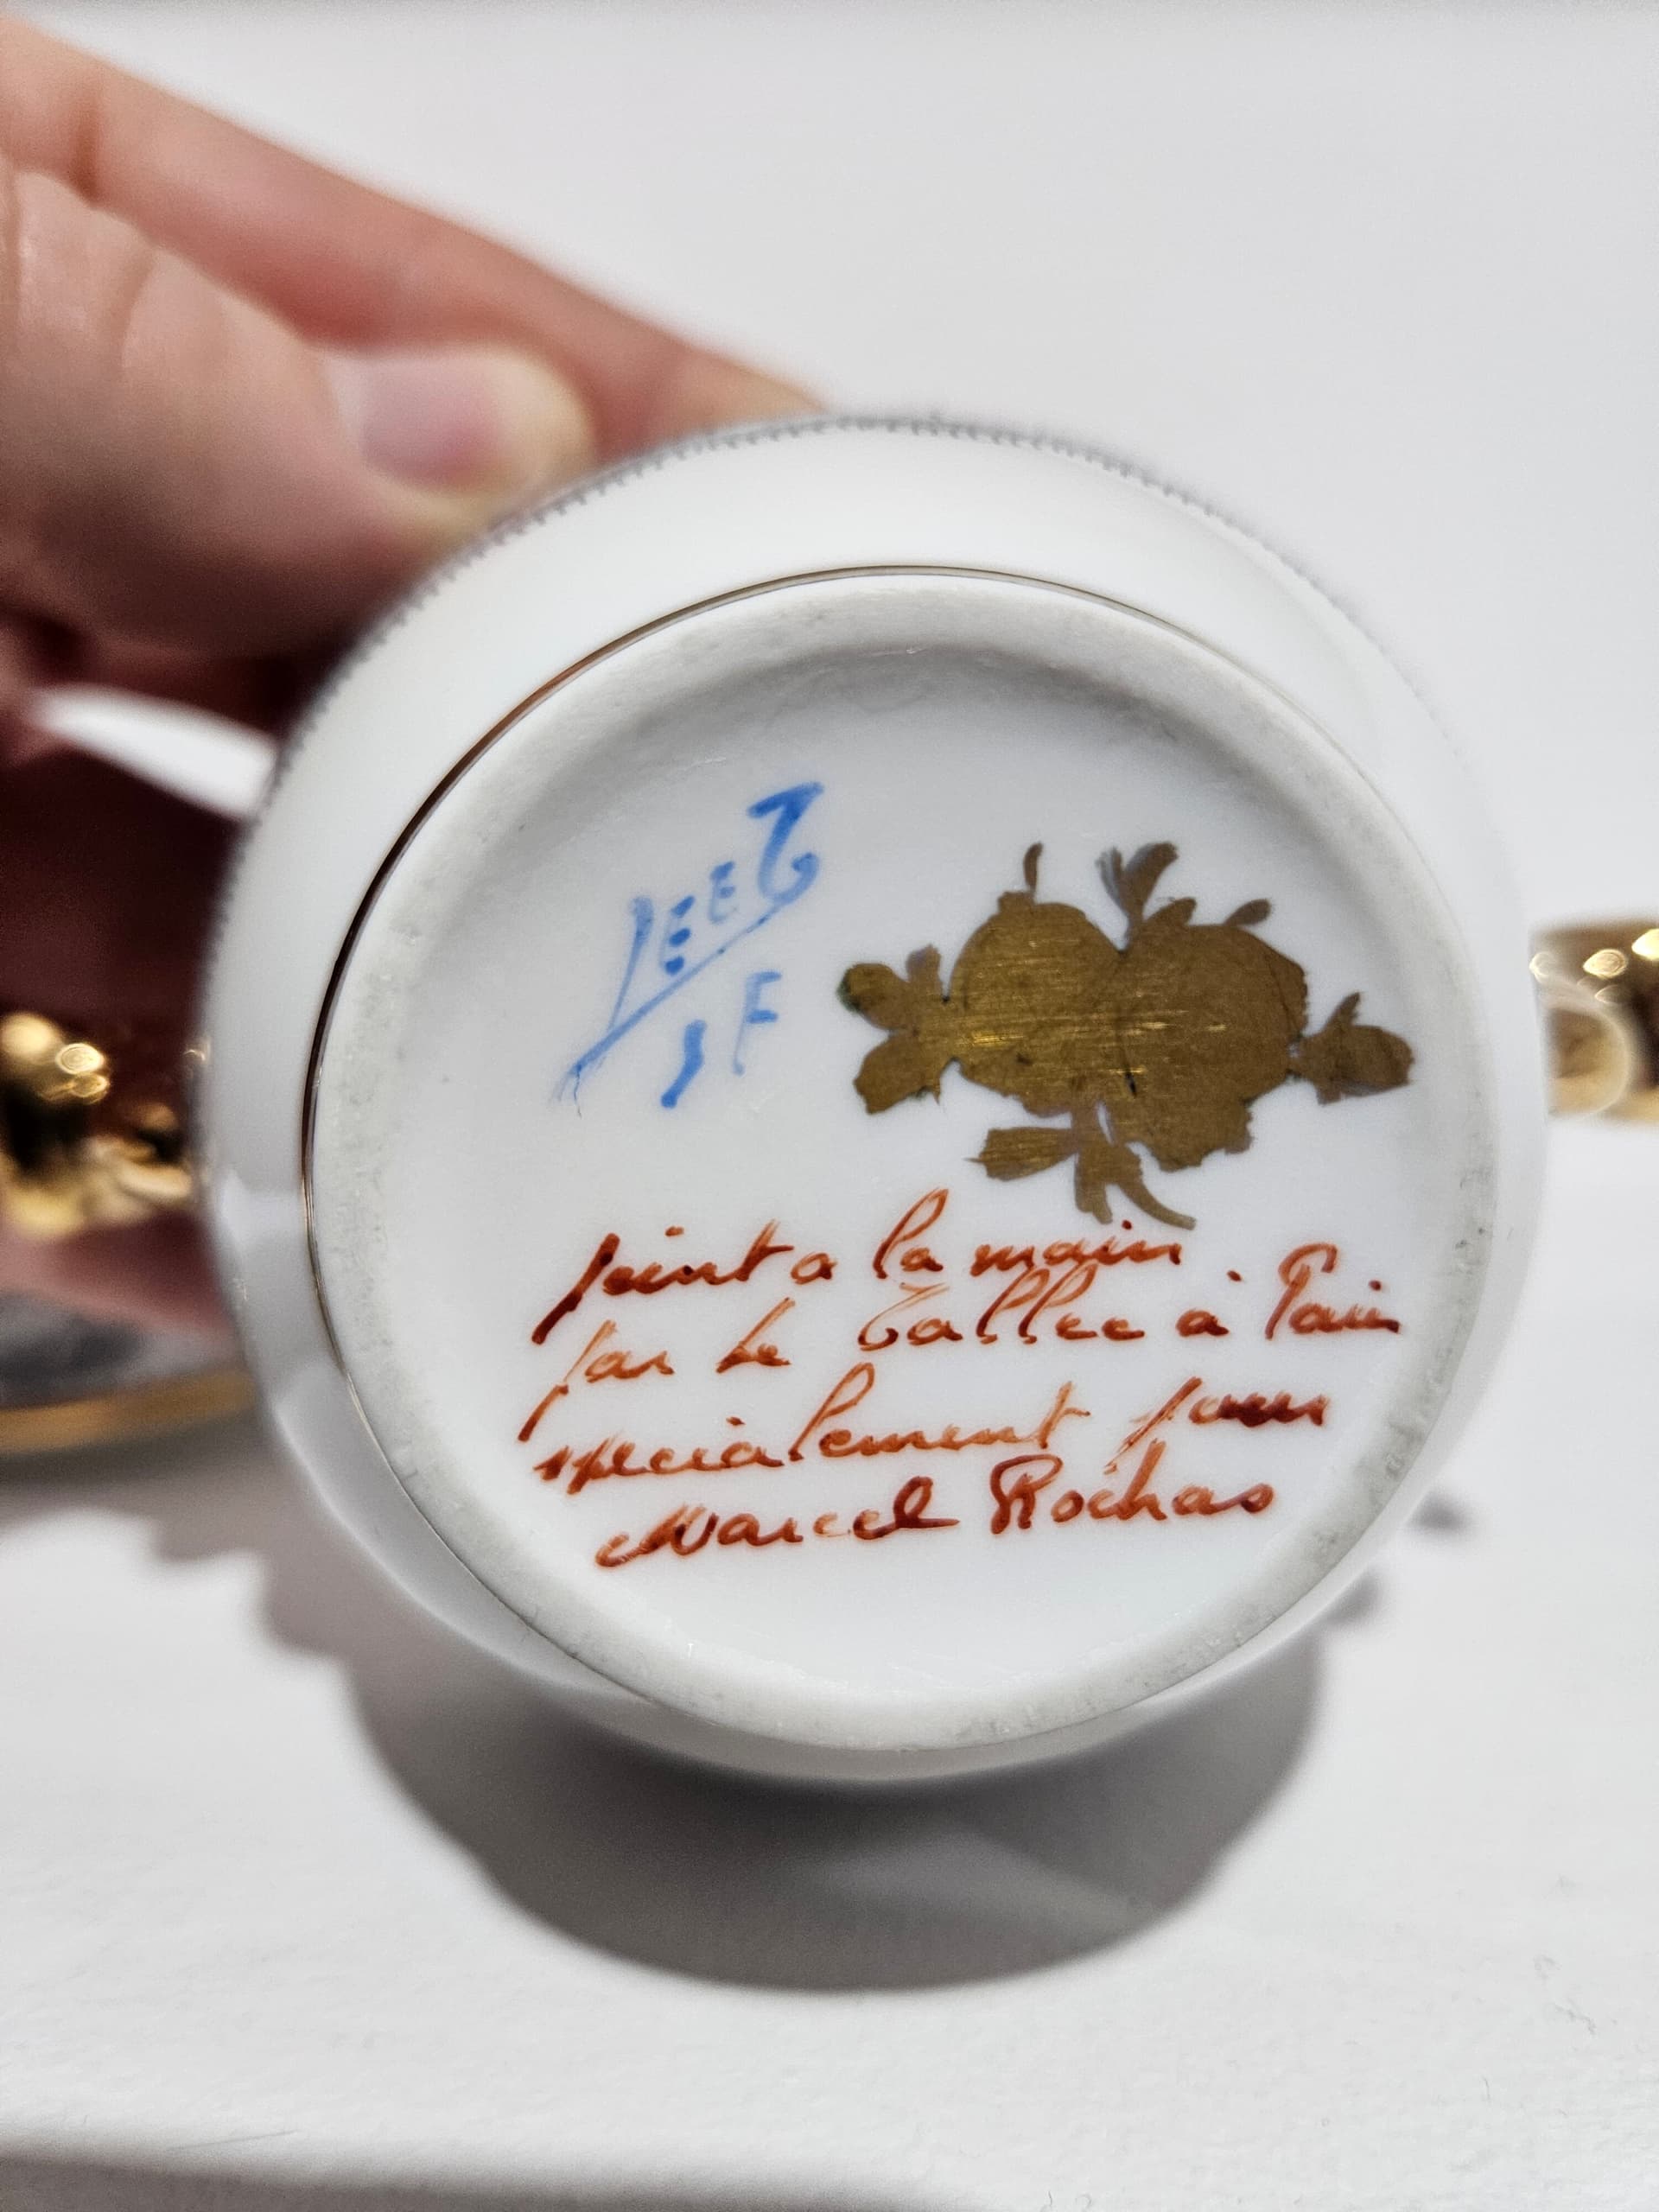 peint a la main
par Le Tallec à Paris
specialement pour
Marcel Rochas